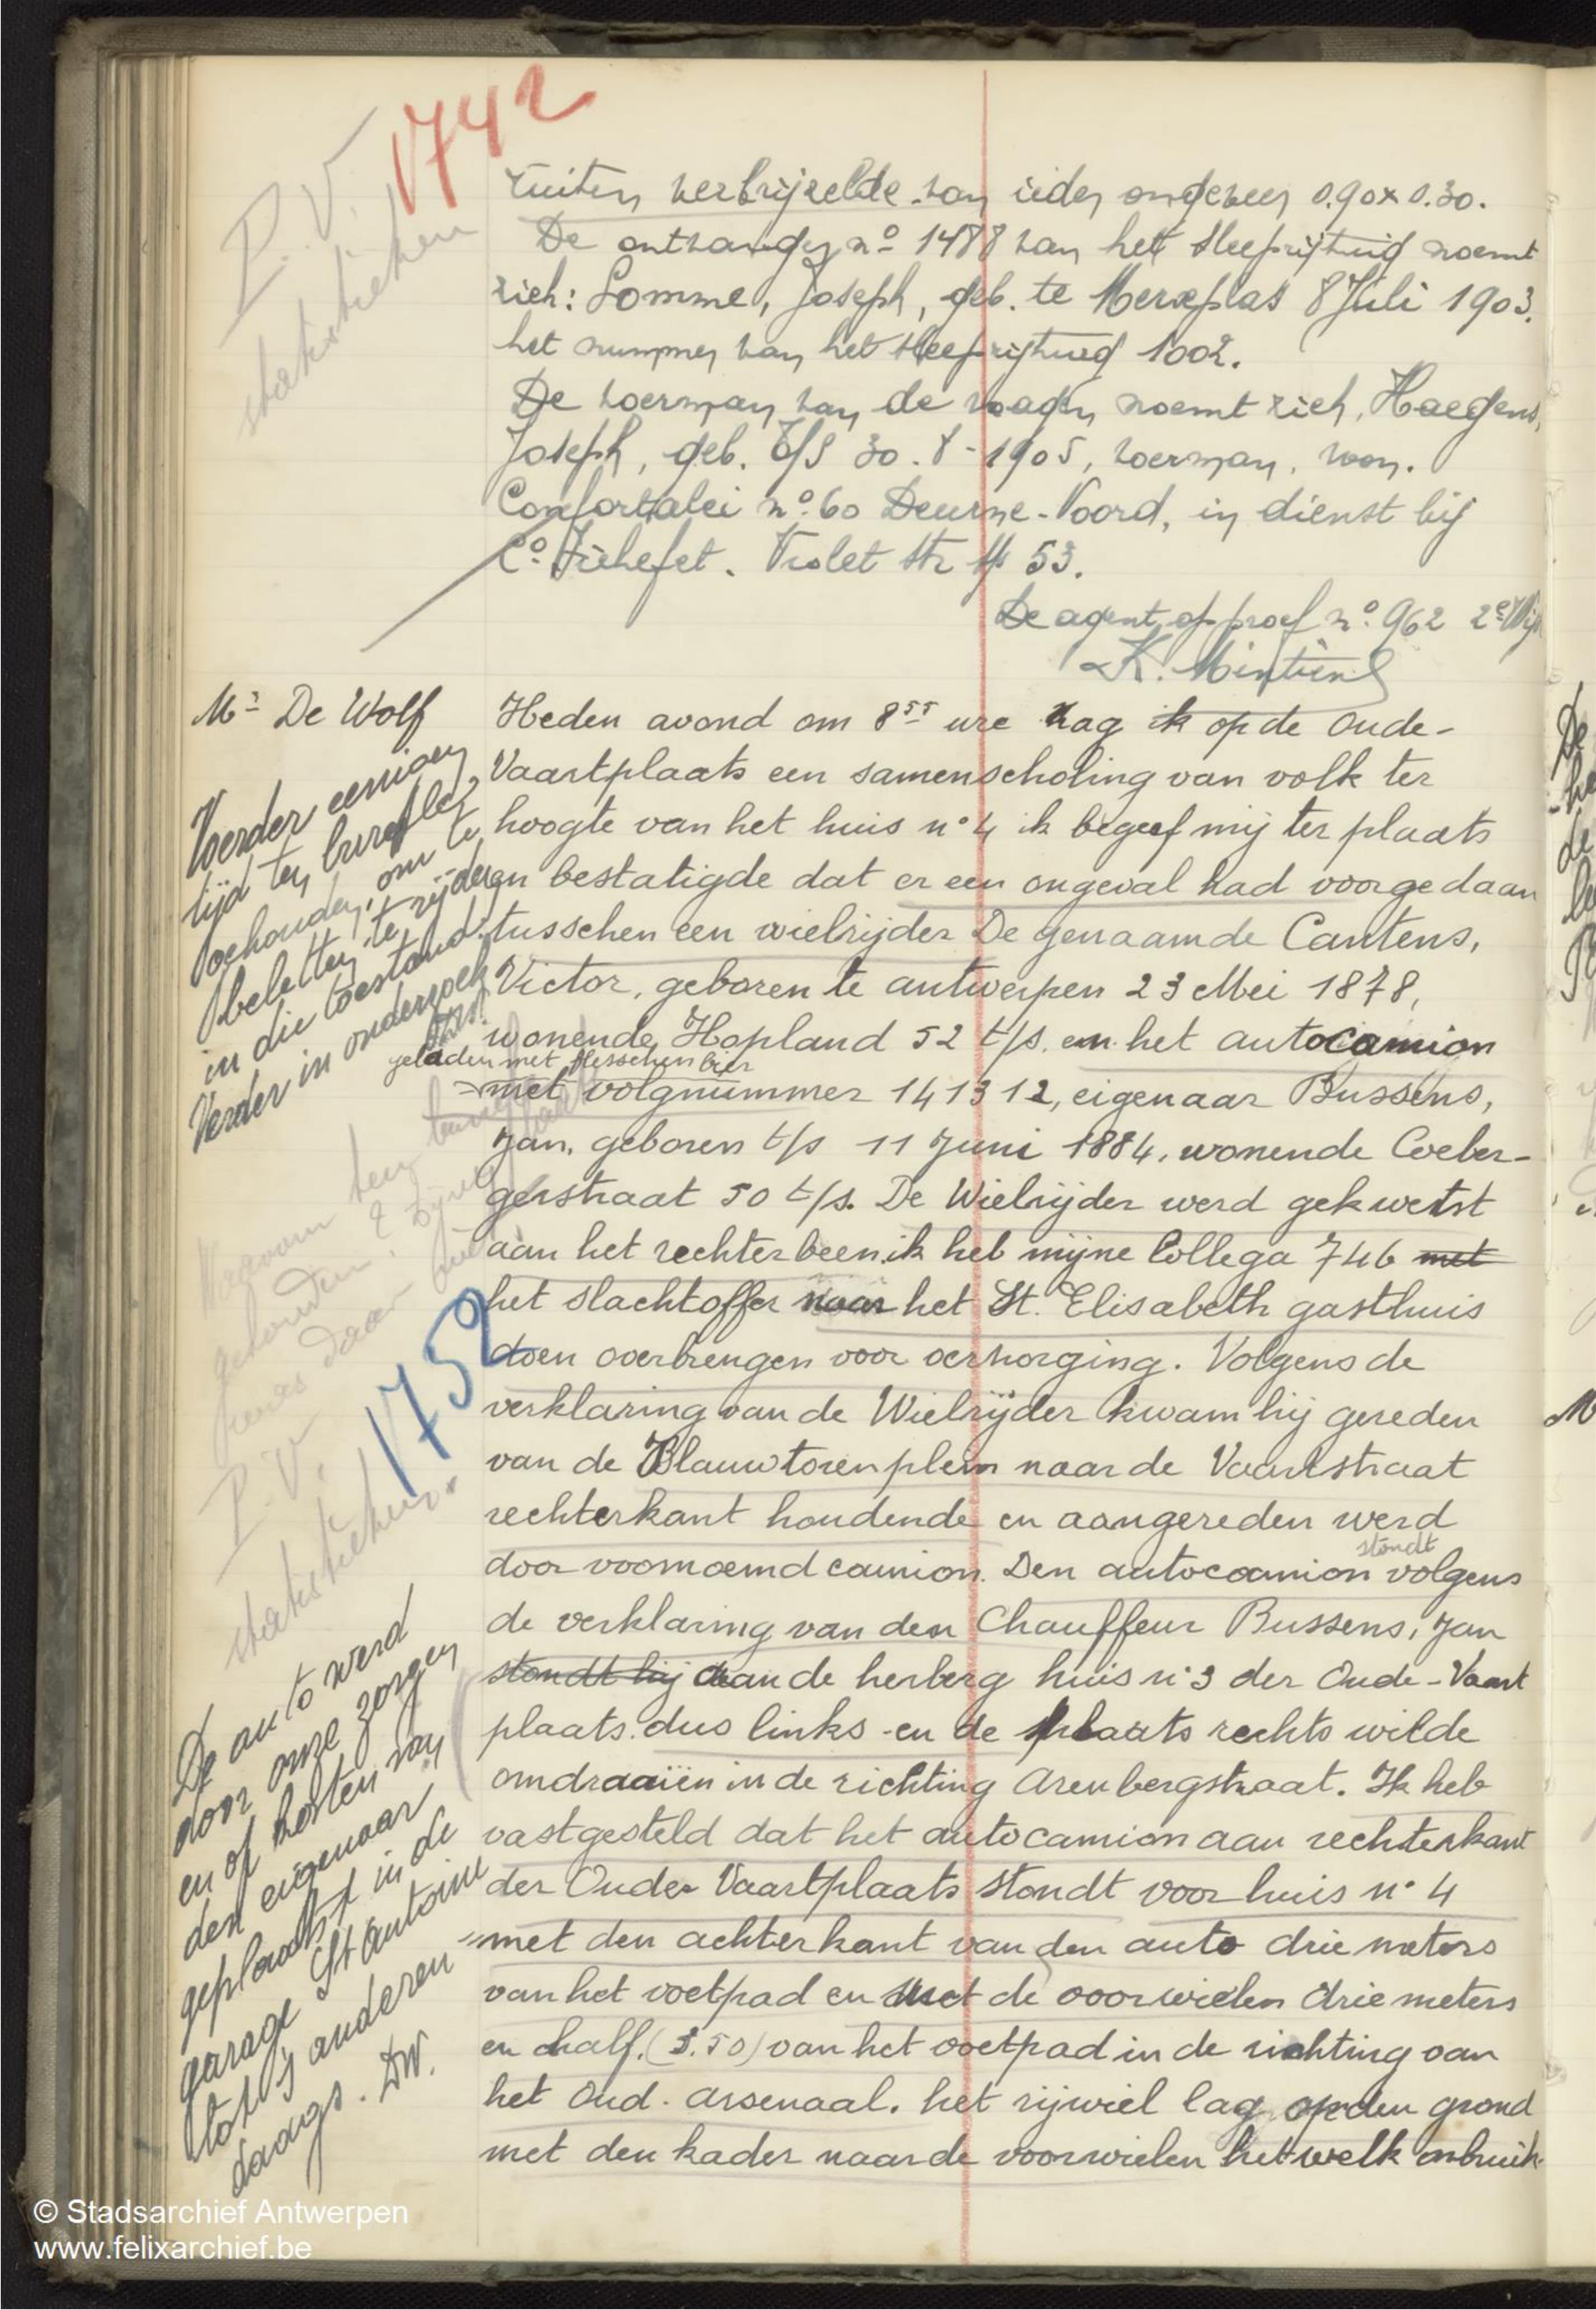 1742
P.V.
statistieken
ruiten verbrijzelde van ieder ongeveer 0.90 x 0.30.
De ontvanger nº 1488 van het sleeprijtuig noemt
zich: Somme, Joseph, geb. te Merxplas 8 Juli 1903.
het nummer van het sleeprijtuig 1002.
De voerman van de wagen noemt zich, Haegens,
Joseph, geb. t/s 30.8-1905, voerman, won.
Confortalei nº 60 Deurne-Noord, in dienst bij
Cº . Violet str 53.
De agent op proef nº 962 2e Wijk
K. Mintiens
Mr De Wolf
Verder eenigen
tijd ten bureele
behouden, om te
beletten te rijden
in die toestand.
Verder in onderzoek
Heden avond om 8 55 ure zag ik op de Oude-
Vaartplaats een samenscholing van volk ter
hoogte van het huis nº 4 ik begeef mij ter plaats
en bestatigde dat er een ongeval had voorgedaan
tusschen een wielrijder De genaamde Cantens,
Victor, geboren te antwerpen 23 Mei 1878,
wonende Hopland 52 t/s. en het autocamion
geladen met flesschen bier
met volgnummer 141312, eigenaar Bussens,
Jan, geboren t/s 11 Juni 1884, wonende Coeber-
gerstraat 50 t/s. De Wielrijder werd gekwetst
aan het rechterbeen. ik heb mijne Collega 746 met
het slachtoffer naar het St. Elisabeth gasthuis
doen overbrengen voor verzorging. Volgens de
verklaring van de Wielrijder kwam hij gereden
van de Blauwtorenplein naar de Vaartstraat
rechterkant houdende en aangereden werd
door voornoemd camion. Den autocamion stondt volgens
de verklaring van den Chauffeur Bussens, Jan
stondt hij aan de herberg huis nº 3 der Oude-Vaart
plaats. dus links en de plaats rechts wilde
omdraaiën in de richting Arenbergstraat. Ik heb
vastgesteld dat het autocamion aan rechterkant
der Oude Vaartplaats stondt voor huis nº 4
met den achterkant van den auto drie meters
van het voetpad en met de voorwielen drie meters
en half. (3.50) van het voetpad in de richting van
het Oud. Arsenaal. het rijwiel lag op den grond
met den kader naar de voorwielen hetwelk onbruik-
Waarom
1752
P.V.
statistieken.
De auto werd
door onze zorgen
en op kosten van
den eigenaar
geplaatst in de
garage St Antoine
tot 's anderen
daags. DW.
© Stadsarchief Antwerpen
www.felixarchief.be